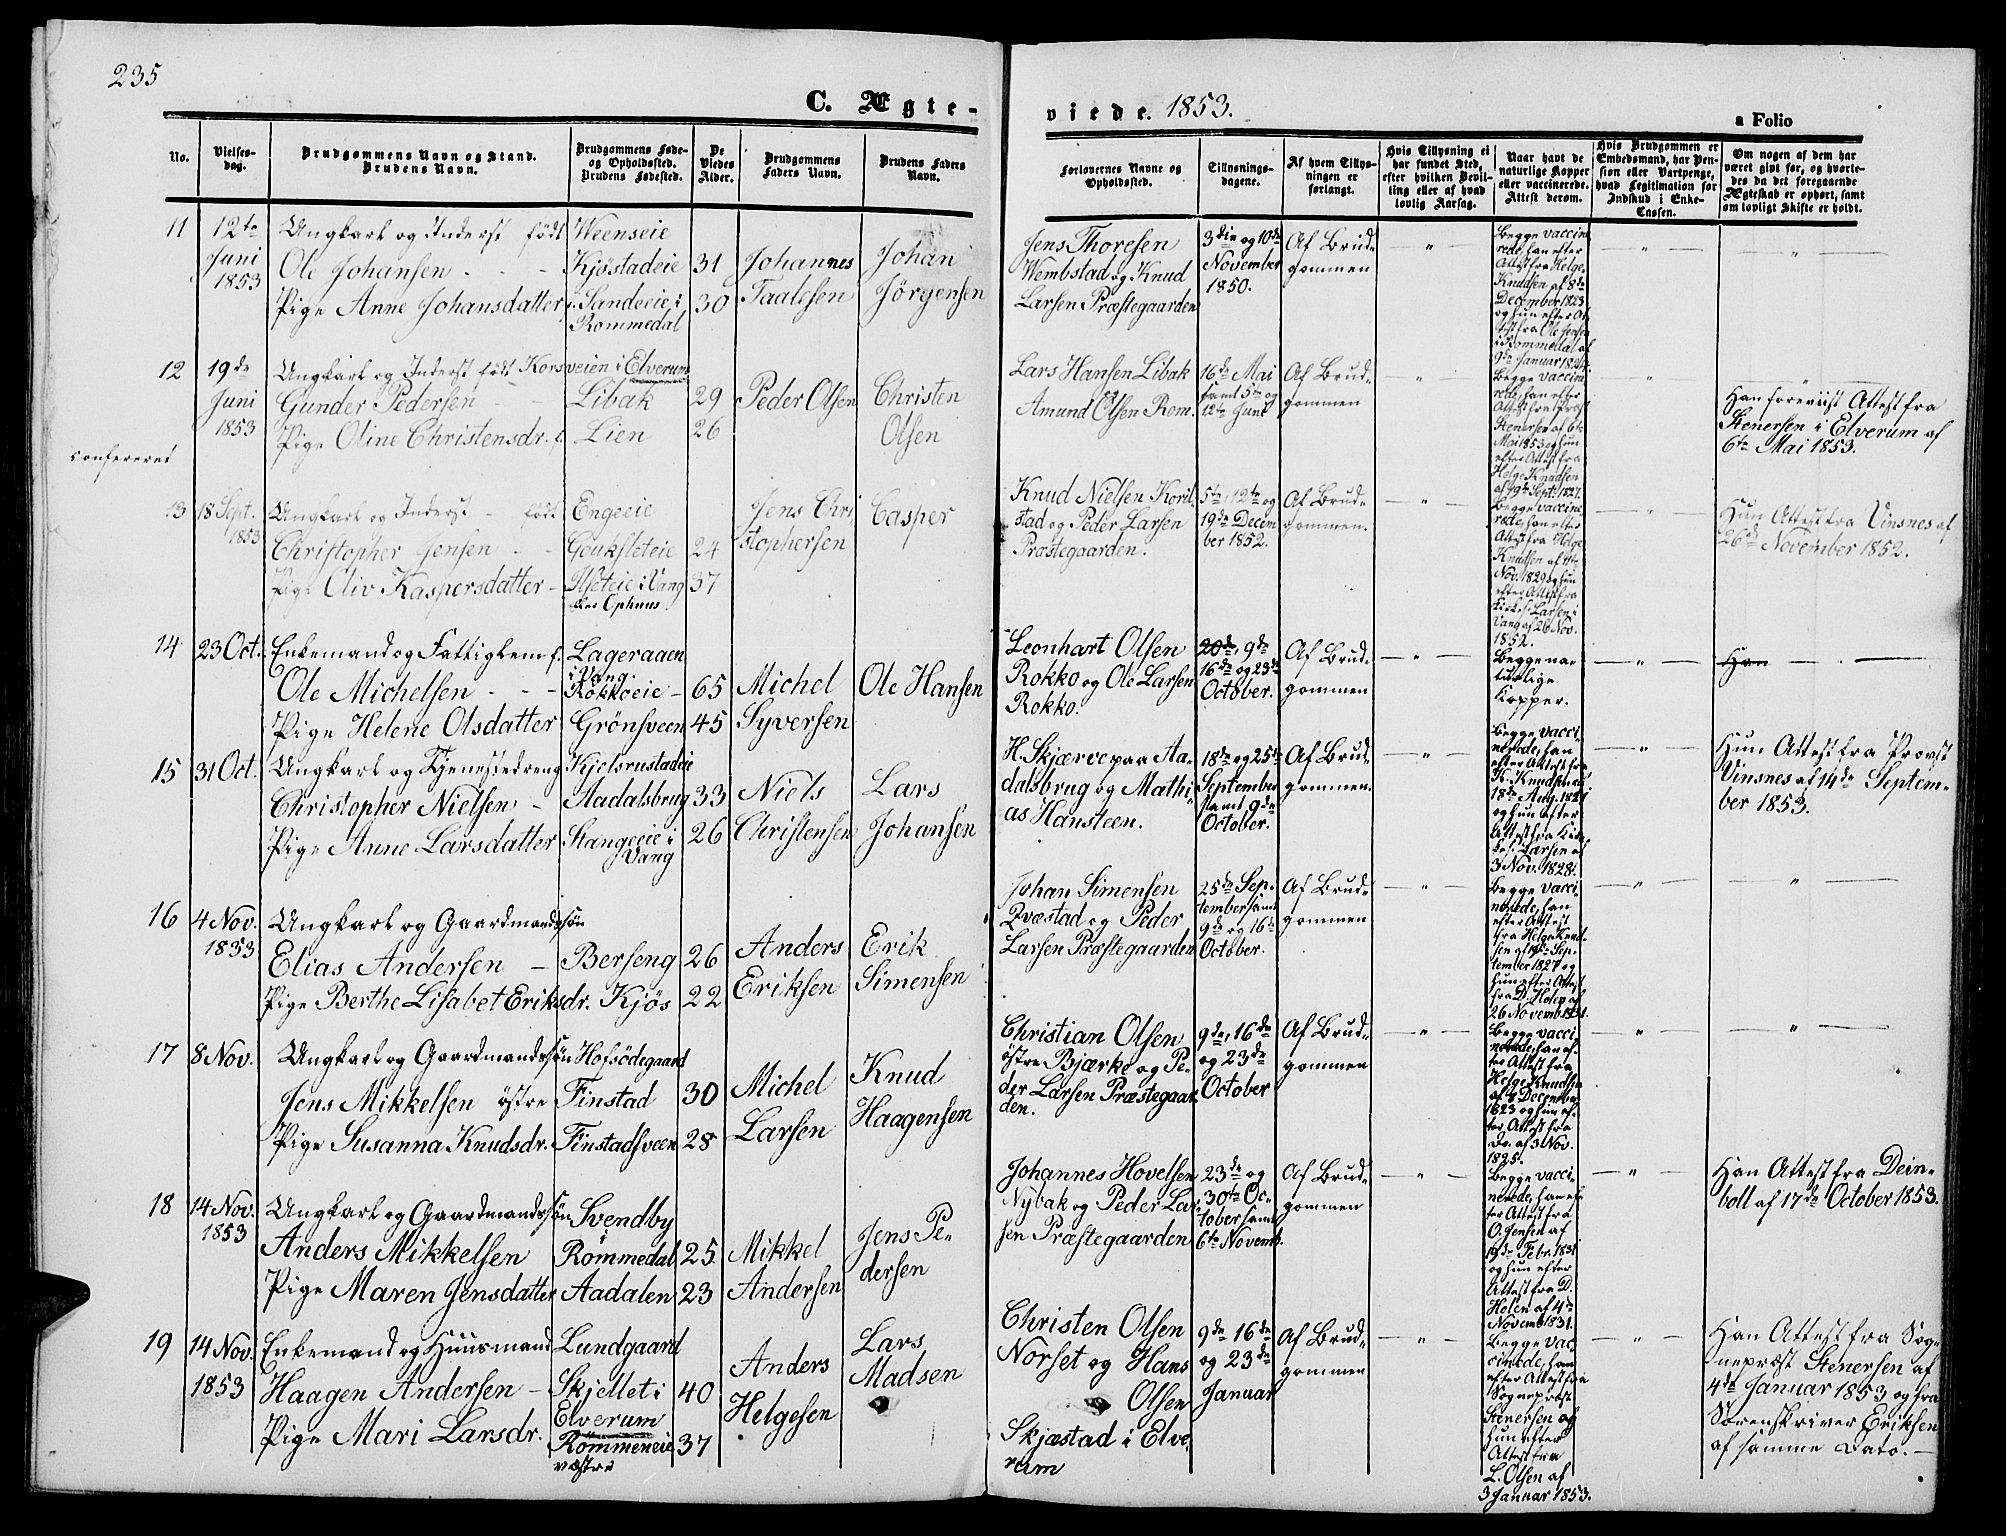 235
C. Ægte-
viede. 1853.
a Folio
No.
Vielses-
dag.
Brudgommens Navn og Stand.
Brudens Navn.
Brudgommens Føde-
og Opholdssted.
Brudens Fødested.
De
Viedes
Alder.
Brudgommens
Faders Navn.
Brudens Faders
Navn.
Forlovernes Navne og
Opholdssted.
Tillysnings-
dagene.
Af hvem Tillys-
ningen er
forlangt.
Hvis Tillysning ei
har fundet Sted,
efter hvilken Bevil-
ling eller af hvad
lovlig Aarsag.
Naar havt de
naturlige Kopper
eller vaccinerede.
Attest derom.
Hvis Brudgommen er
Embedsmand, har Pen-
sion eller Vartpenge,
hvad Legitimation for
Indskud i Enke-
Cassen.
Om nogen af dem har
været gift før, og hvorle-
des da det foregaaende
Ægteskab er ophørt, samt
om lovligt Skifte er holdt.
11
12te
Juni
1853
Ungkarl og Inderst født
Ole Johansen
Pige Anne Johansdatter
Weenseie
Kjöstadeie
Sandeeie i
Rommedal
31
30
Johannes
Taalesen
Johan
Jörgensen
Jens Thoresen
Wembstad og Knud
Larsen Præstegaarden
3die og 10de
November
1850.
Af Brud-
gommen
Begge vaccine
rede, han efter
Attest fra Helge
Knudsen af 8de
December 1823
og hun efter At-
test fra Ole Jensen
i Rommedal af
9de Januar 1824.
12
19de
Juni
1853
Ungkarl og Inderst født Korsveien i Elverum
Gunder Pedersen
Pige Oline Christensdr. f.
Libak
Lien
29
26
Peder Olsen
Christen
Olsen
Lars Hansen Libak
Amund Olsen Rom.
16de Mai
samt 5te og
12te Juni
Af Brud-
gommen
Begge vaccine
rede, han efter
Attest fra Præst
Stenersen af 6te
Mai 1853 og hun
efter Attest fra
Helge Knudsen
af 19de Sept. 1827.
Han foreviist Attest fra
Stenersen i Elverum af
6te Mai 1853.
confereret
13
18 Sept.
1853
Ungkarl og Inderst - født
Christopher Jensen
Pige Oliv Kaspersdatter
Engeeie
Gouksleteie
Ilseteie i Vang
24
37
Jens Chri
stophersen
Casper
Knud Nielsen Koril-
stad og Peder Larsen
Præstegaarden.
5te, 12te og
19de Decem
ber 1852.
Af Brud-
gommen.
Begge vaccine
rede, han efter
Attest fra Helge
Knudsen af 4te
Nov. 1829 og hun
efter Attest fra
Kirkes. Larsen i
Vang af 26 Nov.
1852.
Hun Attest fra Vinsnes af
26de November 1852.
14
23 Oct.
Enkemand og Fattiglem f.
Ole Michelsen
Pige Helene Olsdatter
Lageraaen
i Vang.
Rokkoeie
Grönsveen
65
45
Michel
Syversen
Ole Hansen
Leonhart Olsen
Rokko og Ole Larsen
Rokko.
20de, 9de
16de og 23de
October.
Af Brud-
gommen
Begge na-
turlige
Kopper.
Han
15
31 Oct.
Ungkarl og Tjenestedreng
Christopher Nielsen
Pige Anne Larsdatter
Kjelsrustadeie
Aadalsbrug
Stangeeie i
Vang
33
26
Niels
Christensen
Lars
Johansen
H. Skjærve paa Aa-
dalsbrug og Mathi-
as Hansteen.
18de og 25de
September
samt 9de
October.
Af Brud-
gommen.
Begge vacci-
nerede, han
efter Attest fra
K. Knudsen af
18de Aug. 1821
og hun efter
Attest fra Kir-
kes. Larsen af
3 Nov. 1828.
Hun Attest fra Provst
Vinsnes af 14de Septem-
ber 1853.
16
4 Nov.
1853
Ungkarl og Gaardmandssön
Elias Andersen
Pige Berthe Lisabet Eriksdr.
Berseng
Kjös
26
22
Anders
Eriksen
Erik
Simensen
Johan Simensen
Qvæstad og Peder
Larsen Præstegaarden
25de Sep-
tember samt
9de og 16de
October.
Af Brud-
gommen
Begge vacci
nerede, han
efter Attest
fra Helge Knud-
sen af 14de Sep-
tember 1827 og
hun efter Attest
fra D. Helen af
26 Novemb. 1831.
17
8 Nov.
Ungkarl og Gaardmandssön
Jens Mikkelsen östre
Pige Susanna Knudsdr.
Hofsödegaard
Finstad
Finstadsveen
30
28
Michel
Larsen
Knud
Haagensen
Christian Olsen
östre Bjærke og Pe-
der Larsen Præstegaar-
den.
9de, 16de
og 23de
October
Af Brud-
gommen
Begge vacci
nerede, han af-
ter Attest fra
Helge Knudsen
af 4 December
1823 og hun ef-
ter Attest fra
Do. af 3 Nov.
1825.
18
14 Nov.
1853
Ungkarl og Gaardmandssön
Anders Mikkelsen
Pige Maren Jensdatter
Svendby
i
Rommedal
Aadalen
25
23
Mikkel
Andersen
Jens Pe-
dersen
Johannes Hovelsen
Nybak og Peder Lar-
sen Præstegaarden
23de og
30te Oc-
tober samt
6te Novemb.
Af Brud-
gommen
Begge vacci-
nerede, han ef-
ter Attest fra
O. Jensen af
19de Febr. 1831
og hun efter
Attest fra D.
Helen af 4de
Novemb. 1831.
Han Attest fra Dein-
boll af 17de October 1853.
19
14 Nov.
1853
Enkemand og Huusmand
Haagen Andersen
Pige Mari Larsdr.
Lundgaard
Skjellet i
Elverum
Römmeneie
vestre
40
37
Anders
Helgesen
Lars
Madsen
Christen Olsen
Norset og Hans
Olsen
Skjæstad i Elve
rum
9de 16de
og 23de
Januar
Af Brud-
gommen
Begge vac-
cinede, han
efter Attest fra
Sognepræst
Stenersen og
hun efter
Attest fra
L. Olsen af
3 Januar 1853.
Han Attest fra Sog-
nepræst Stenersen af
4de Januar 1853 og fra
Sorenskriver Eriksen
af samme Dato.